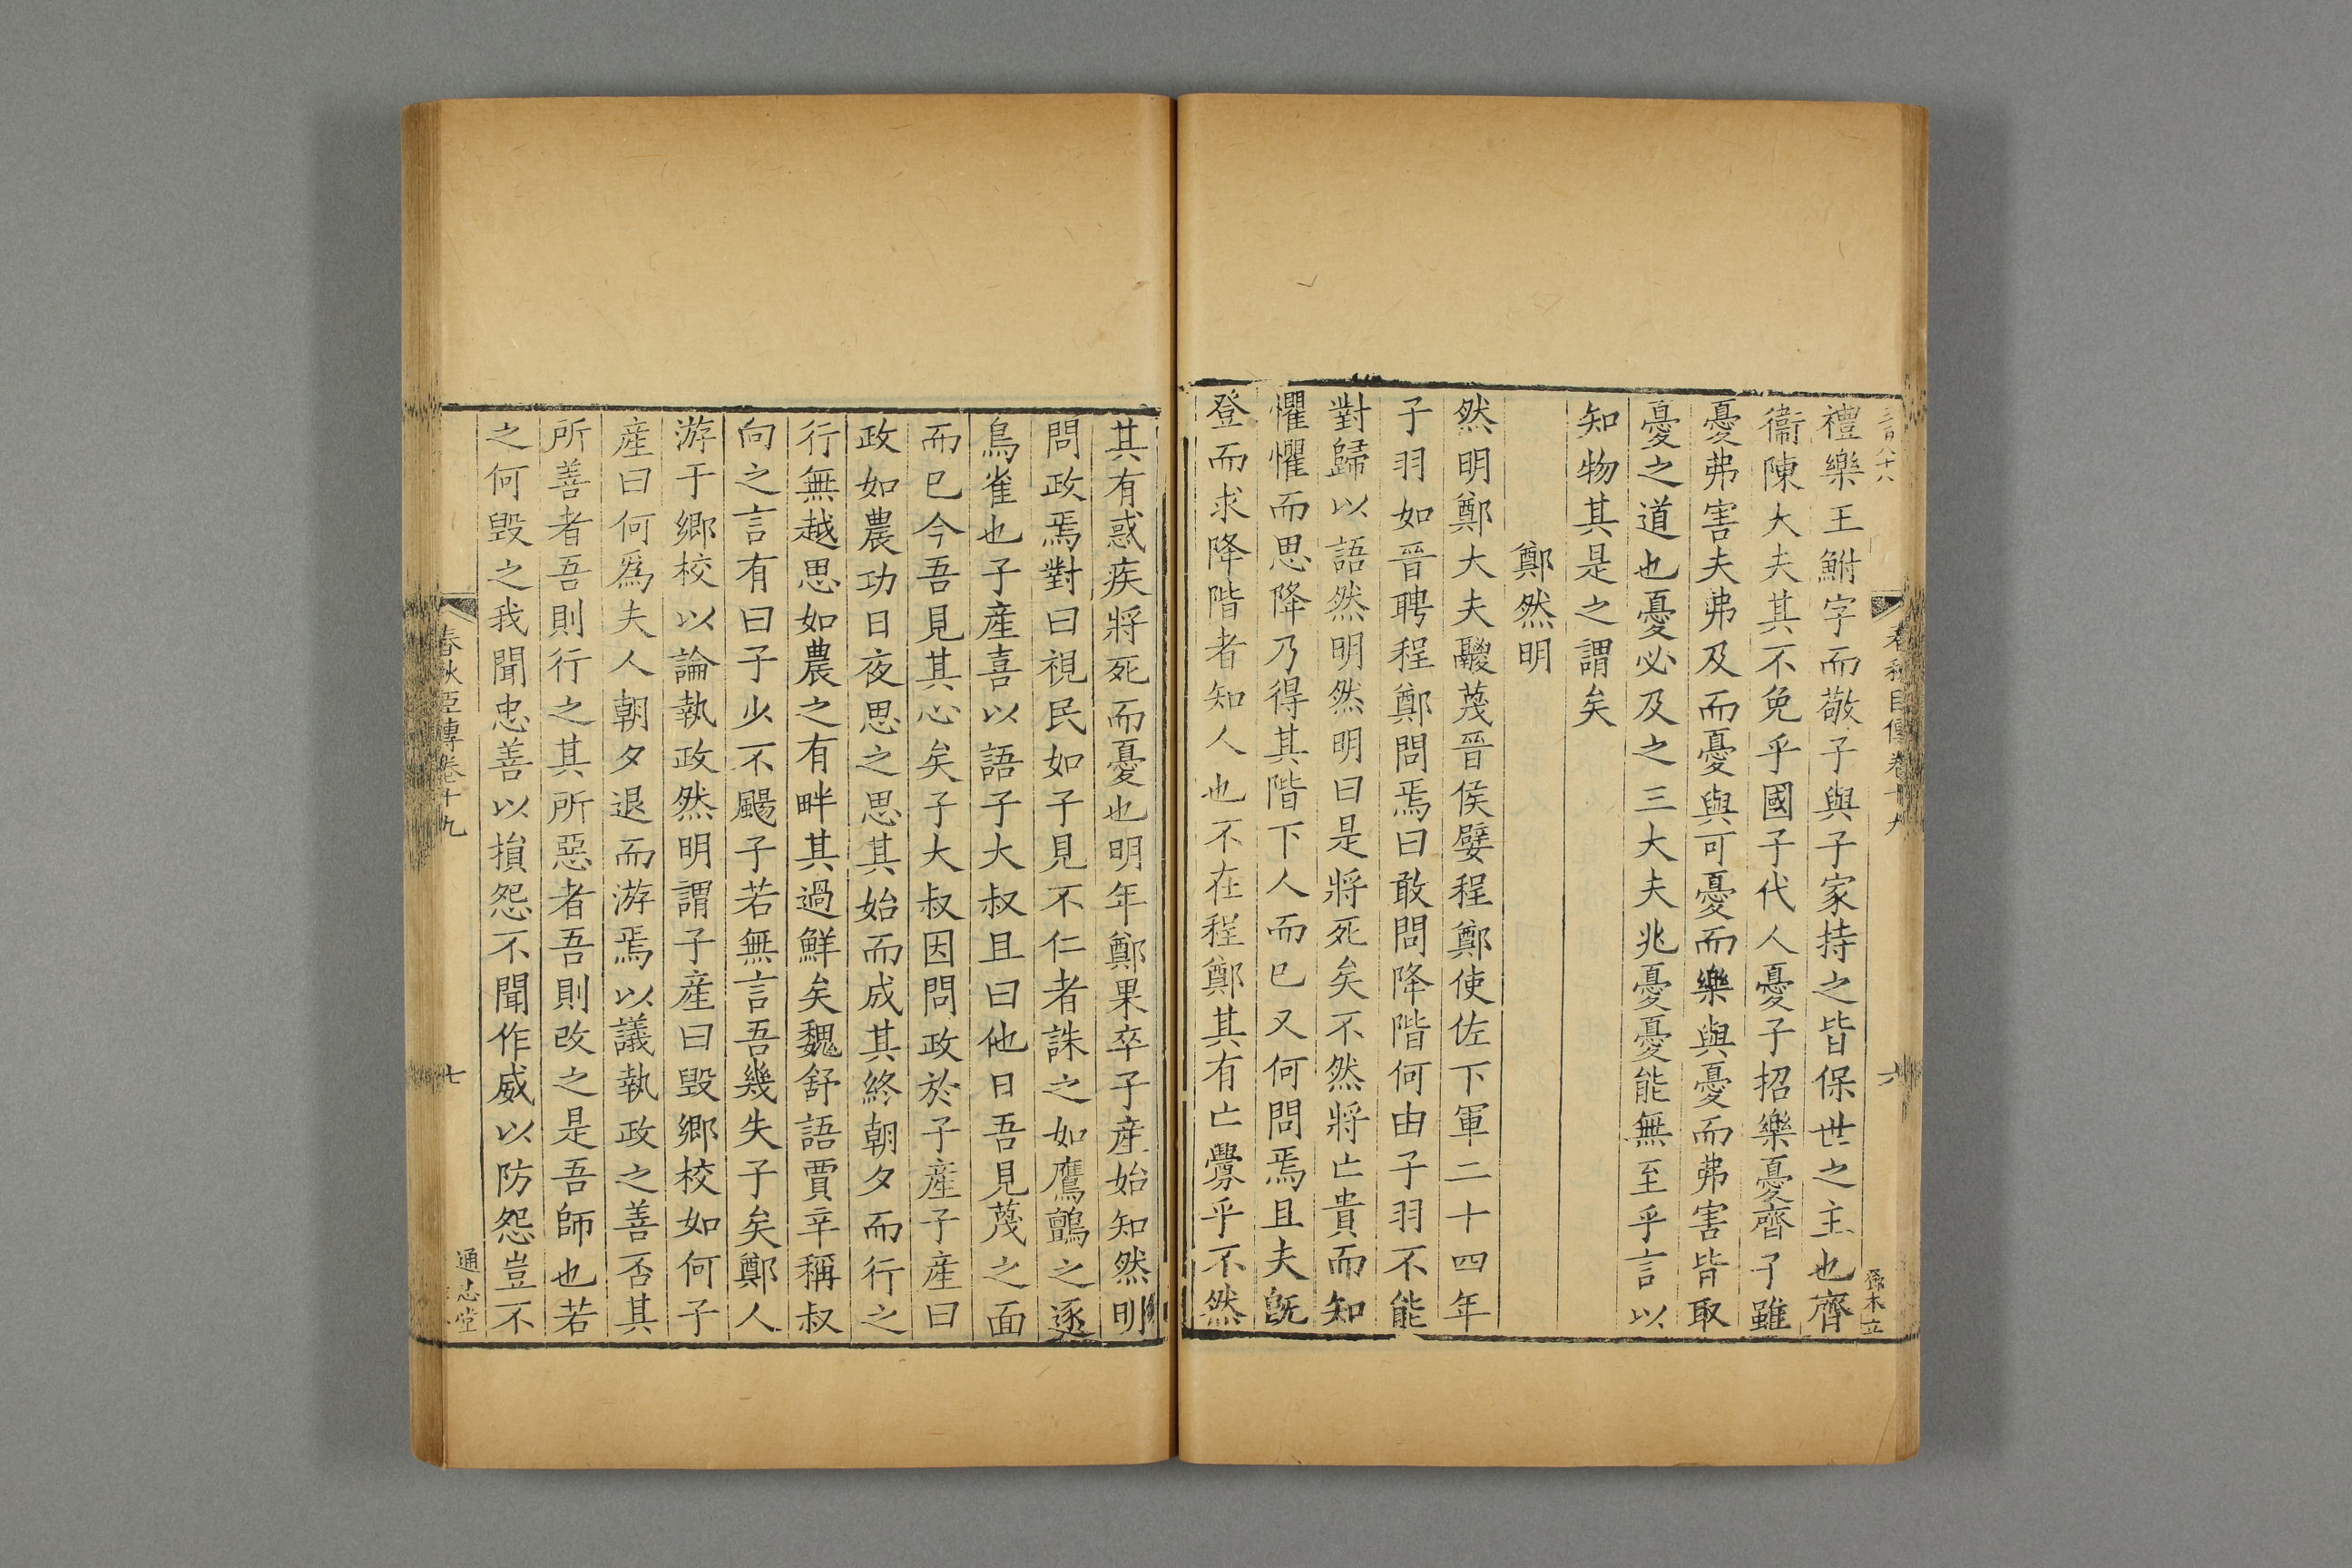 禮樂王鮒字而敬子與子家持之皆保世之主也齊
衞陳大夫其不免乎國子代人憂子招樂憂齊子雖
憂弗害夫弗及而憂與可憂而樂與憂而弗害皆取
憂之道也憂必及之三大夫兆憂憂能無至乎言以
知物其是之謂矣
鄭然明
然明鄭大夫鬷蔑晉侯嬖程鄭使佐下軍二十四年
子羽如晉聘程鄭問焉曰敢問降階何由子羽不能
對歸以語然明然明曰是將死矣不然將亡貴而知
懼懼而思降乃得其階下人而已又何問焉且夫旣
登而求降階者知人也不在程鄭其有亡釁乎不然
其有惑疾將死而憂也明年鄭果卒子産始知然明
問政焉對曰視民如子見不仁者誅之如鷹鸇之逐
鳥雀也子產喜以語子大叔且曰他日吾見蔑之面
而已今吾見其心矣子大叔因問政於子産子産曰
政如農功日夜思之思其始而成其終朝夕而行之
行無越思如農之有畔其過鮮矣魏舒語賈辛稱叔
向之言有曰子少不颺子若無言吾幾失子矣鄭人
游于鄉校以論執政然明謂子産曰毀鄉校如何子
産曰何爲夫人朝夕退而游焉以議執政之善否其
所善者吾則行之其所惡者吾則改之是吾師也若
之何毀之我聞忠善以損怨不聞作威以防怨豈不
春秋臣傳卷十九
七
通志堂